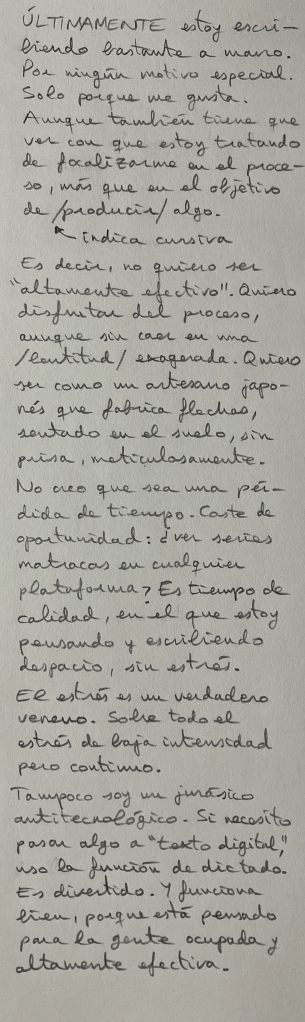 ÚLTIMAMENTE estoy escri-
biendo bastante a mano.
Por ningún motivo especial.
Solo porque me gusta.
Aunque también tiene que
ver con que estoy tratando
de focalizarme en el proce-
so, más que en el objetivo
de /producir/ algo.
indica cursiva
Es decir, no quiero ser
"altamente efectivo". Quiero
disfrutar del proceso,
aunque sin caer en una
/lentitud/ exagerada. Quiero
ser como un artesano japo-
nés que fabrica flechas,
sentado en el suelo, sin
prisa, meticulosamente.
No creo que sea una pér-
dida de tiempo. Coste de
oportunidad: ¿ver series
matracas en cualquier
plataforma? Es tiempo de
calidad, en el que estoy
pensando y escribiendo
despacio, sin estrés.
El estrés es un verdadero
veneno. Sobre todo el
estrés de baja intensidad
pero continuo.
Tampoco soy un jurásico
antitecnológico. Si necesito
pasar algo a "texto digital",
uso la función de dictado.
Es divertido. Y funciona
bien, porque está pensado
para la gente ocupada y
altamente efectiva.